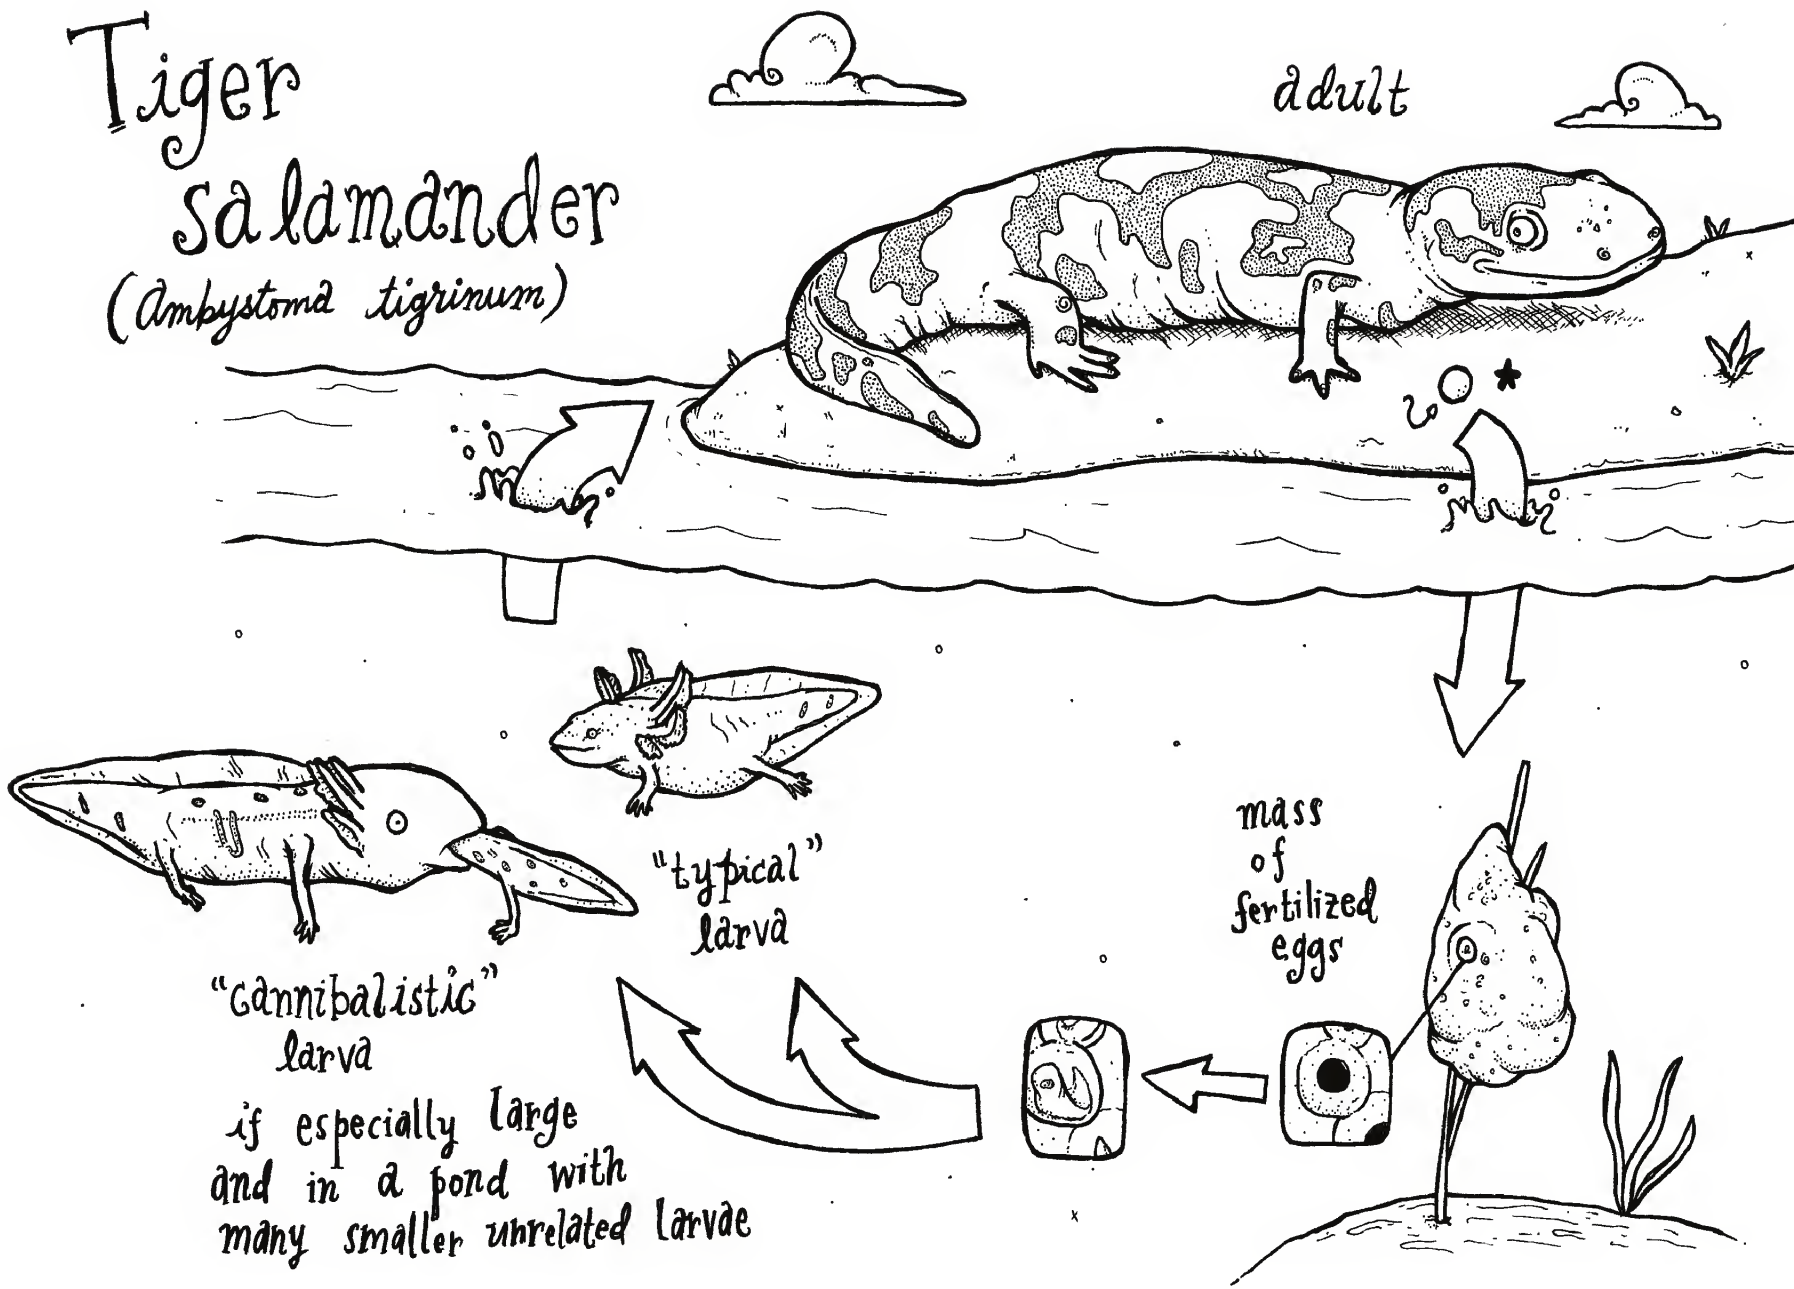 Tiger
salamander
(Ambystoma tigrinum)
adult
mass
of
fertilized
eggs
"typical"
larva
"cannibalistic"
larva
if especially large
and in a pond with
many smaller unrelated larvae